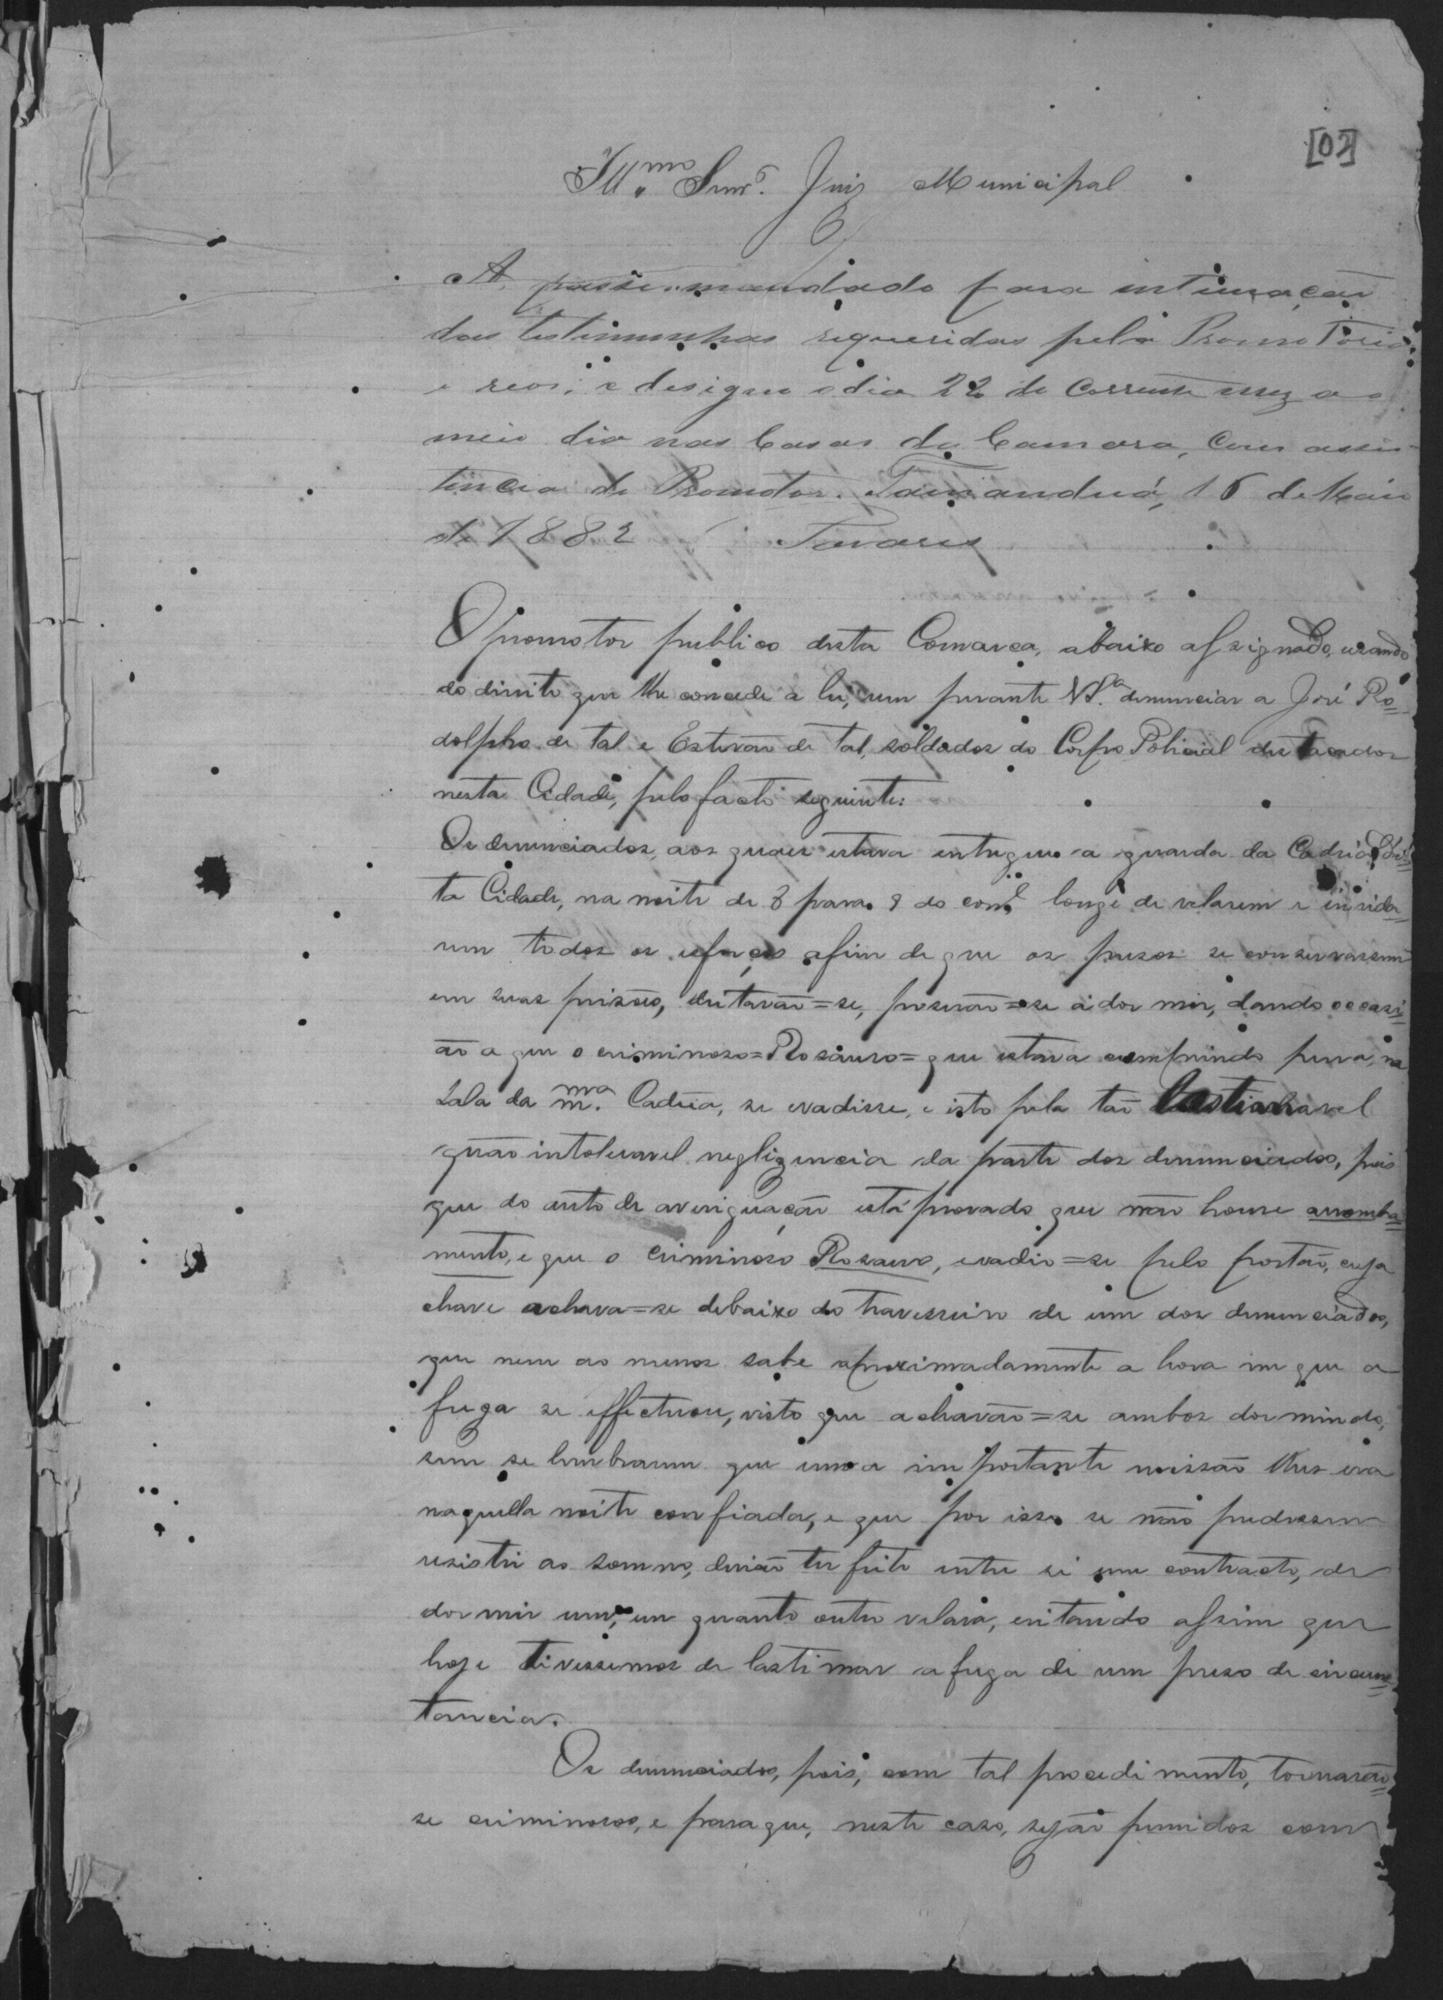 [02]
Ill.mo Snr. Juiz Municipal
A. passe mandado para intimação
das testimunhas requeridas pela Promotoria
e reos; e designo o dia 22 do corrente mez ao
meio dia nas Casas da Camara, com assis-
tencia do Promotor. Tamanduá, 16 de Maio
de 1882 Tavares
O promotor publico desta Comarca, abaixo assignado, usando
do direito que lhe concede a lei, vem perante V.Sa. denunciar a José Ro=
dolpho de tal e Estevão de tal, soldados do Corpo Policial destacados
nesta Cidade, pelo facto seguinte:
Os denunciados, aos quaes estava entregue a guarda da Cadeia des=
ta Cidade, na noite de 8 para 9 do corre longe de velarem e envida=
rem todos os esforços afim de que os presos se conservassem
em suas prisões, deitarão=se, poserão=se a dormir, dando occasi=
ão a que o criminoso=Rosauro=que estava cumprindo pena, na
sala da m.ma Cadeia, se evadisse, e isto pela tão lastimavel
quão intoleravel negligencia da parte dos denunciados, pois
que do auto de averiguação está provado que não houve arromba=
mento, e que o criminoso Rosauro, evadio=se pelo portão, cuja
chave achava=se debaixo do travesseiro de um dos denunciados,
que nem ao menos sabe aproximadamente a hora em que a
fuga se effectuou, visto que achavão=se ambos dormindo,
sem se lembrarem que uma importante missão lhes era
naquella noite confiada, e que por isso se não pudessem
resistir ao somno, devião ter feito entre si um contracto, de
dormir um, em quanto outro velava, evitando assim que
hoje tivessemos de lastimar a fuga de um preso de circums=
tancia.
Os denunciados, pois, com tal procedimento, tornarão=
se criminosos, e para que, neste caso, sejão punidos com